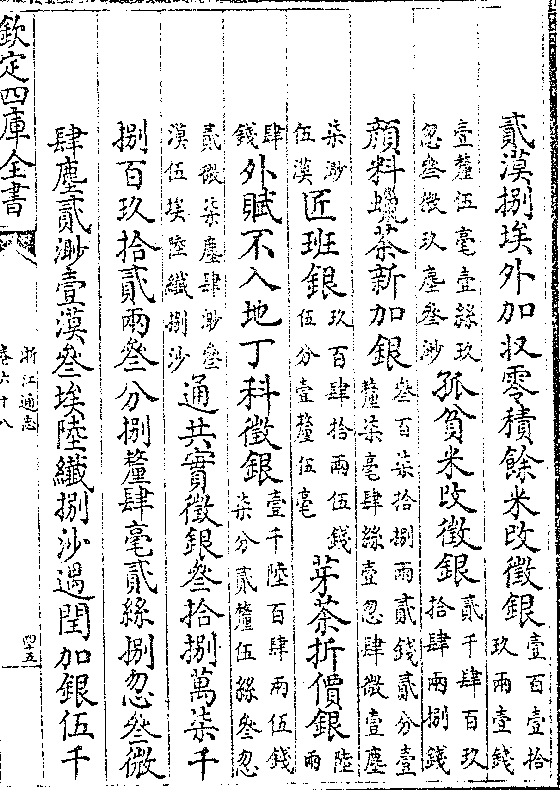 貳漠捌埃外加収零積餘米改徵銀壹百壹拾玖兩壹錢
壹釐伍毫壹絲玖忽叁微玖塵叁渺孤貧米改徵銀貳千肆百玖拾肆兩捌錢
顏料蠟茶新加銀叁百柒拾捌兩貳錢貳分壹釐柒毫肆絲壹忽肆微壹塵
柒渺伍漠匠班銀玖百肆拾兩伍錢伍分壹釐伍毫芽茶折價銀陸兩
肆錢外賦不入地丁科徵銀壹千陸百肆兩伍錢柒分貳釐伍絲叁忽
貳微柒塵肆渺叁漠伍埃陸纖捌沙通共實徵銀叁拾捌萬柒千
捌百玖拾貳兩叁分捌釐肆毫貳絲捌忽叁微
肆塵貳渺壹漠叁埃陸纖捌沙遇閏加銀伍千
欽定四庫全書
浙江通志
卷六十八
四十五